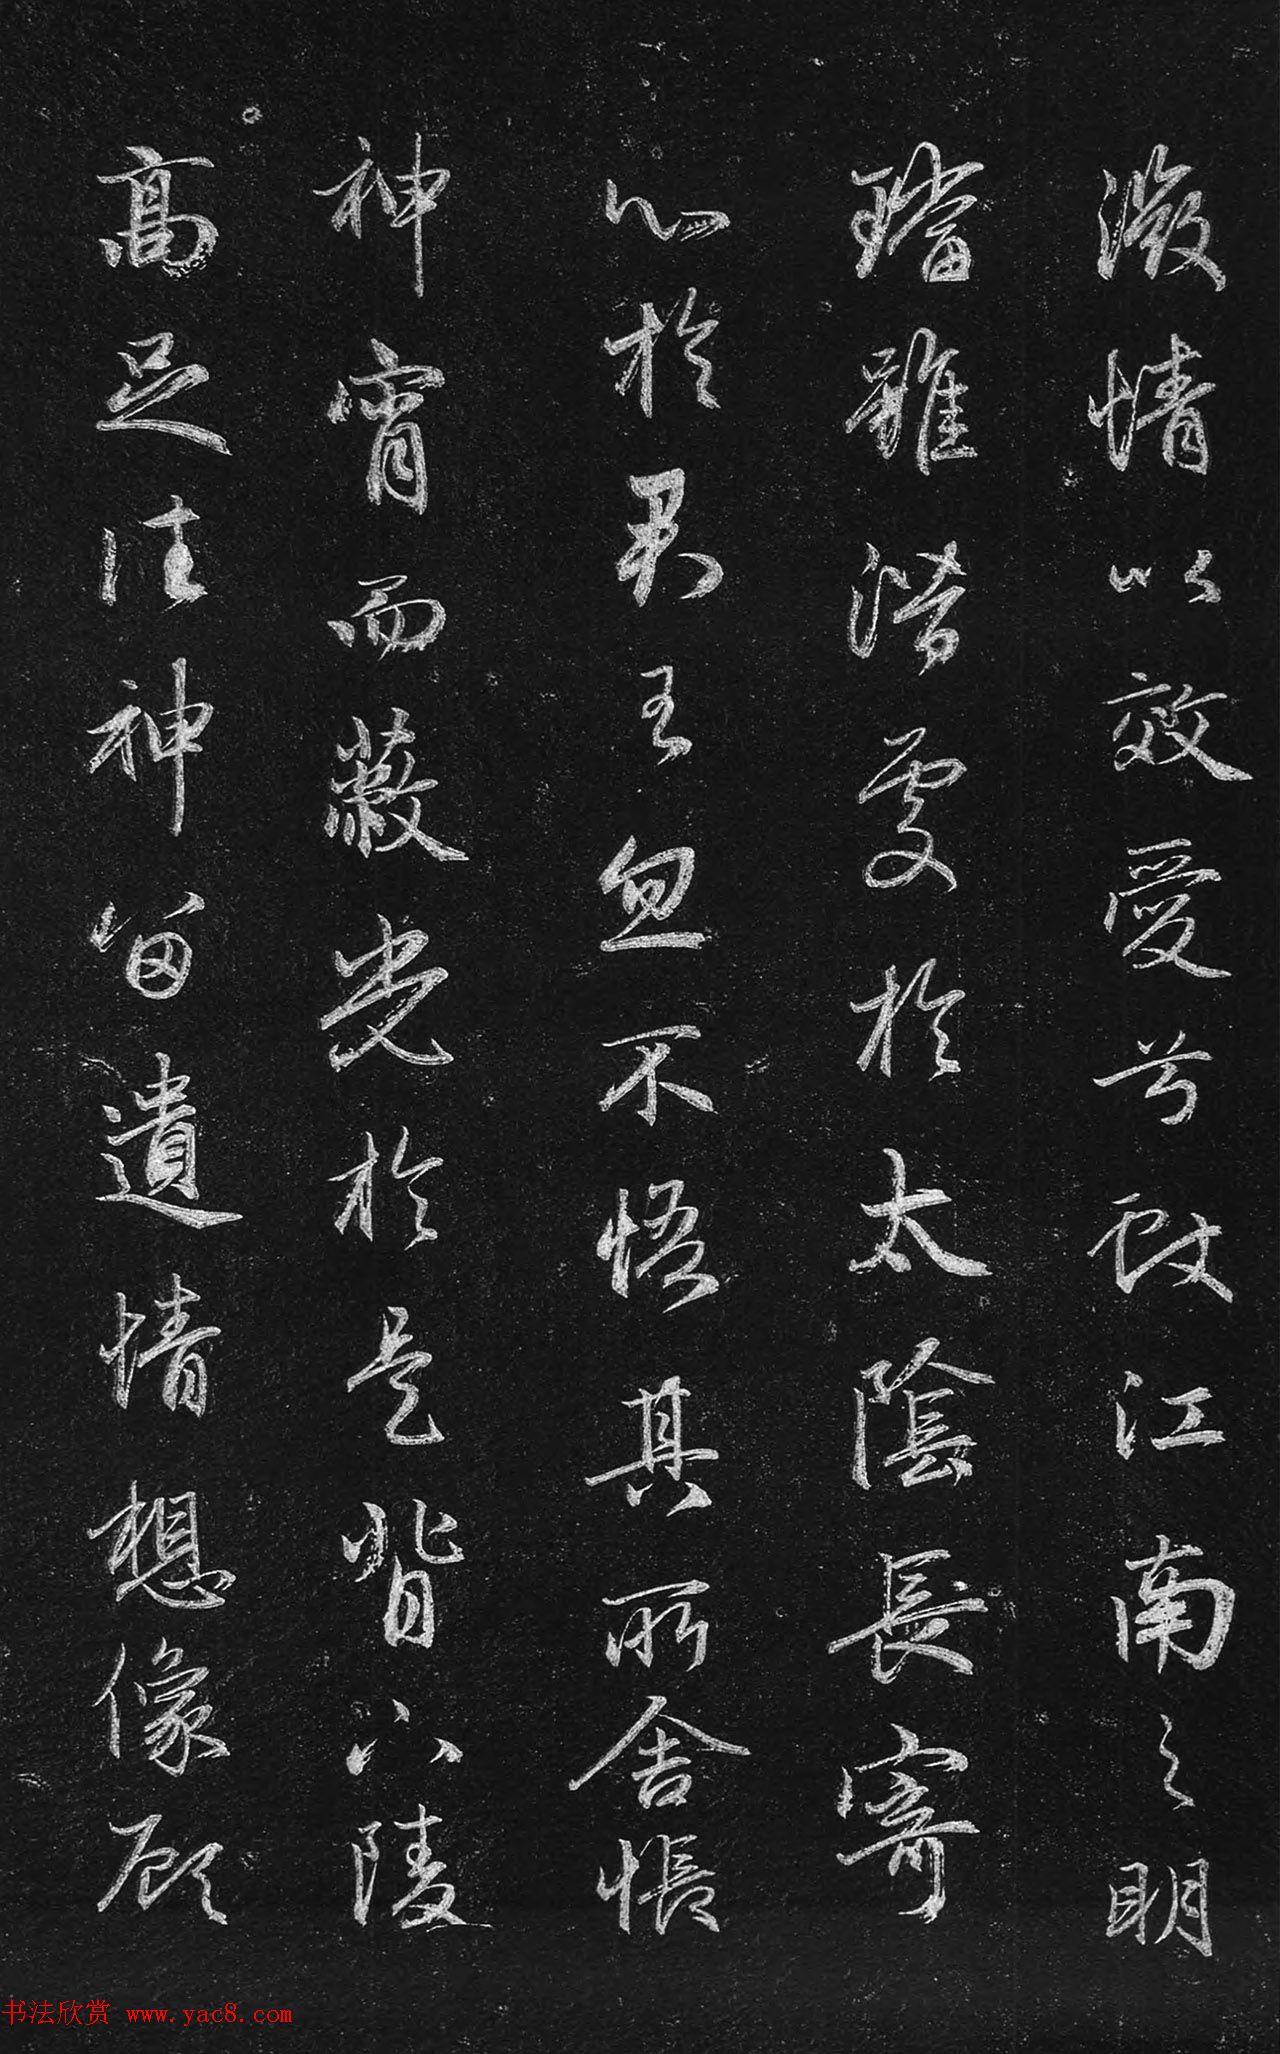 微情以效愛兮獻江南之明
璫雖潛處於太陰長寄
心於君王忽不悟其所舍悵
神宵而蔽光於是背下陵
高足往神留遺情想像顧
书法欣赏 www.yac8.com